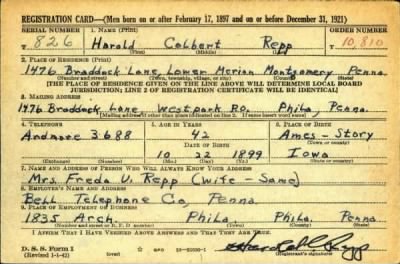 REGISTRATION CARD—(Men born on or after February 17, 1897 and on or before December 31, 1921)
SERIAL NUMBER 1. NAME (Print) ORDER NUMBER
T 826 Harold Colbert Repp 10,810
(First) (Middle) (Last)
2. PLACE OF RESIDENCE (Print)
1476 Braddock Lane Lower Merion Montgomery Penna.
(Number and street) (Town, township, village, or city) (County) (State)
[THE PLACE OF RESIDENCE GIVEN ON THE LINE ABOVE WILL DETERMINE LOCAL BOARD
JURISDICTION; LINE 2 OF REGISTRATION CERTIFICATE WILL BE IDENTICAL]
3. MAILING ADDRESS
1476 Braddock Lane Westpark P.O. Phila, Penna.
[Mailing address if other than place indicated on line 2. If same insert word same]
4. TELEPHONE 5. AGE IN YEARS 6. PLACE OF BIRTH
Ardmore 3688 42 Ames - Story
DATE OF BIRTH (Town or county)
10 22 1899 Iowa
(Exchange) (Number) (Mo.) (Day) (Yr.) (State or country)
7. NAME AND ADDRESS OF PERSON WHO WILL ALWAYS KNOW YOUR ADDRESS
Mrs. Freda V. Repp (Wife - Same)
8. EMPLOYER'S NAME AND ADDRESS
Bell Telephone Co, Penna
9. PLACE OF EMPLOYMENT OR BUSINESS
1835 Arch. Phila. Phila. Penna
(Number and street or R. F. D. number) (Town) (County) (State)
I AFFIRM THAT I HAVE VERIFIED ABOVE ANSWERS AND THAT THEY ARE TRUE.
D. S. S. Form 1
(Revised 1-1-42) (Registrant's signature)